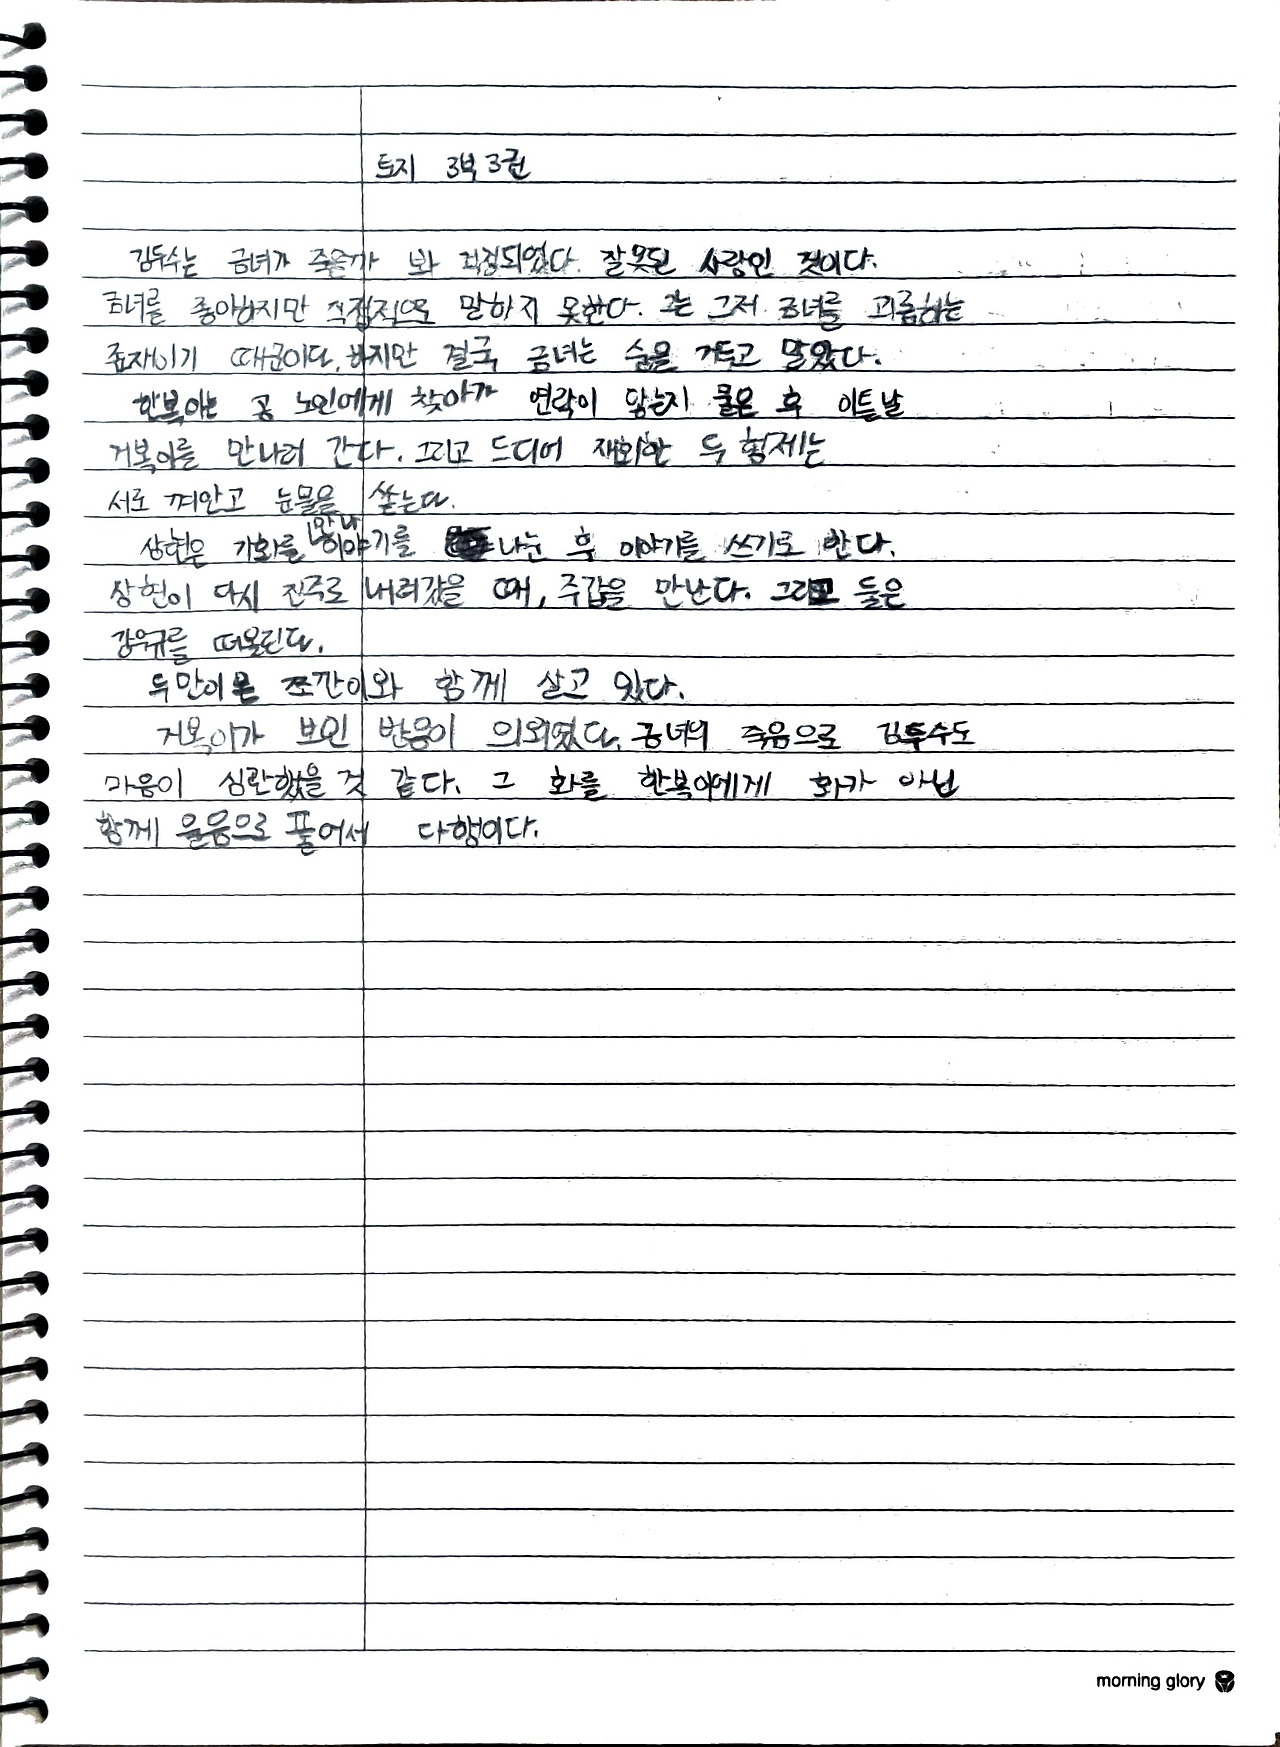 토지 3부 3권
김두수는 금녀가 죽을까 봐 걱정되었다. 잘못된 사랑인 것이다.
금녀를 좋아하지만 직접적으로 말하지 못한다. 그는 그저 금녀를 괴롭히는
존재이기 때문이다. 하지만 결국 금녀는 숨을 거두고 말았다.
한복이는 공 노인에게 찾아가 연락이 닿는지 물은 후 이튿날
거복이를 만나러 간다. 그리고 드디어 재회한 두 형제는
서로 껴안고 눈물을 쏟는다.
상현은 기화를 만나 이야기를 나눈 후 이야기를 쓰기로 한다.
상현이 다시 진주로 내려갔을 때, 주갑을 만난다. 그리고 둘은
강우규를 떠올린다.
두만이는 쪼깐이와 함께 살고 있다.
거복이가 보인 반응이 의외였다. 금녀의 죽음으로 김두수도
마음이 심란했을 것 같다. 그 화를 한복이에게 화가 아닌
함께 울음으로 풀어서 다행이다.
morning glory